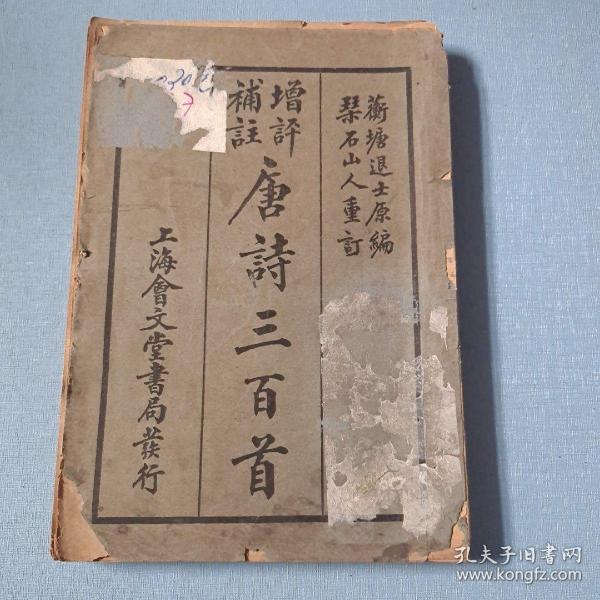 蘅塘退士原編
琴石山人重訂
增評
補註
唐詩三百首
上海會文堂書局發行
孔夫子旧书网
www.kongfz.com